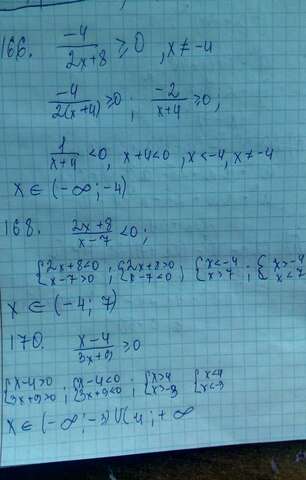 166. -4/(2x+8) ≥ 0 , x ≠ -4
-4/(2(x+4)) ≥ 0 ; -2/(x+4) ≥ 0 ;
1/(x+4) < 0 , x+4 < 0 , x < -4 , x ≠ -4
x ∈ (-∞ ; -4)
168. (2x+8)/(x-7) < 0 ;
{2x+8 < 0 x-7 > 0 ; {2x+8 > 0 x-7 < 0 ; {x < -4 x > 7 ; {x > -4 x < 7
x ∈ (-4 ; 7)
170. (x-4)/(3x+9) ≥ 0
{x-4 > 0 3x+9 > 0 ; {x-4 < 0 3x+9 < 0 ; {x > 4 x > -3 {x < 4 x < -3
x ∈ (-∞ ; -3) U (4 ; +∞